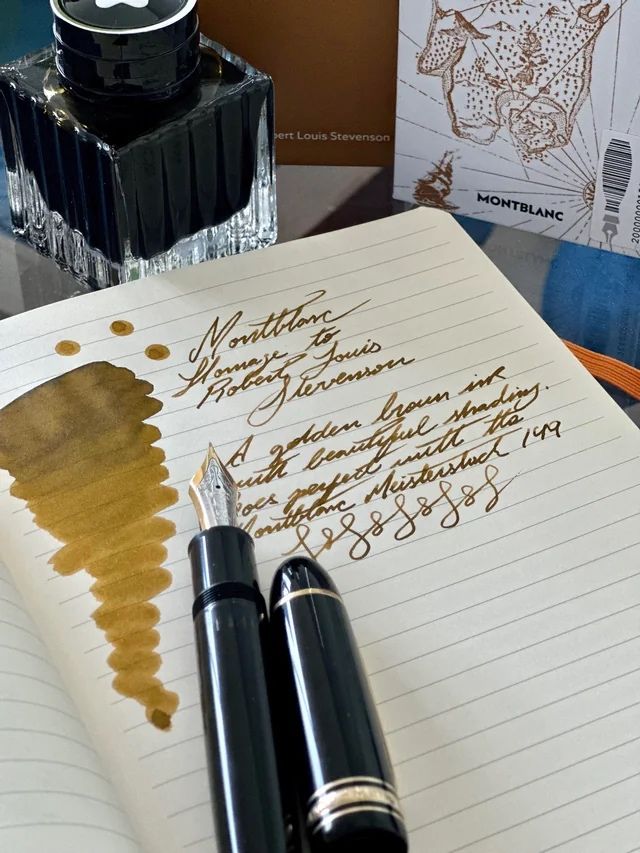 bert Louis Stevenson
MONTBLANC
Montblanc
Homage to
Robert Louis
Stevenson
A golden brown ink
with beautiful shading.
oes perfect with the
ontblanc Meisterstück 149